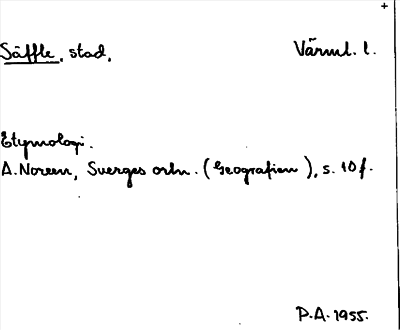 Säffle, stad, Värml. l.
Etymologi.
A. Noreen, Sveriges ortn. (Geografien), s. 10 f.
P.A. 1955.